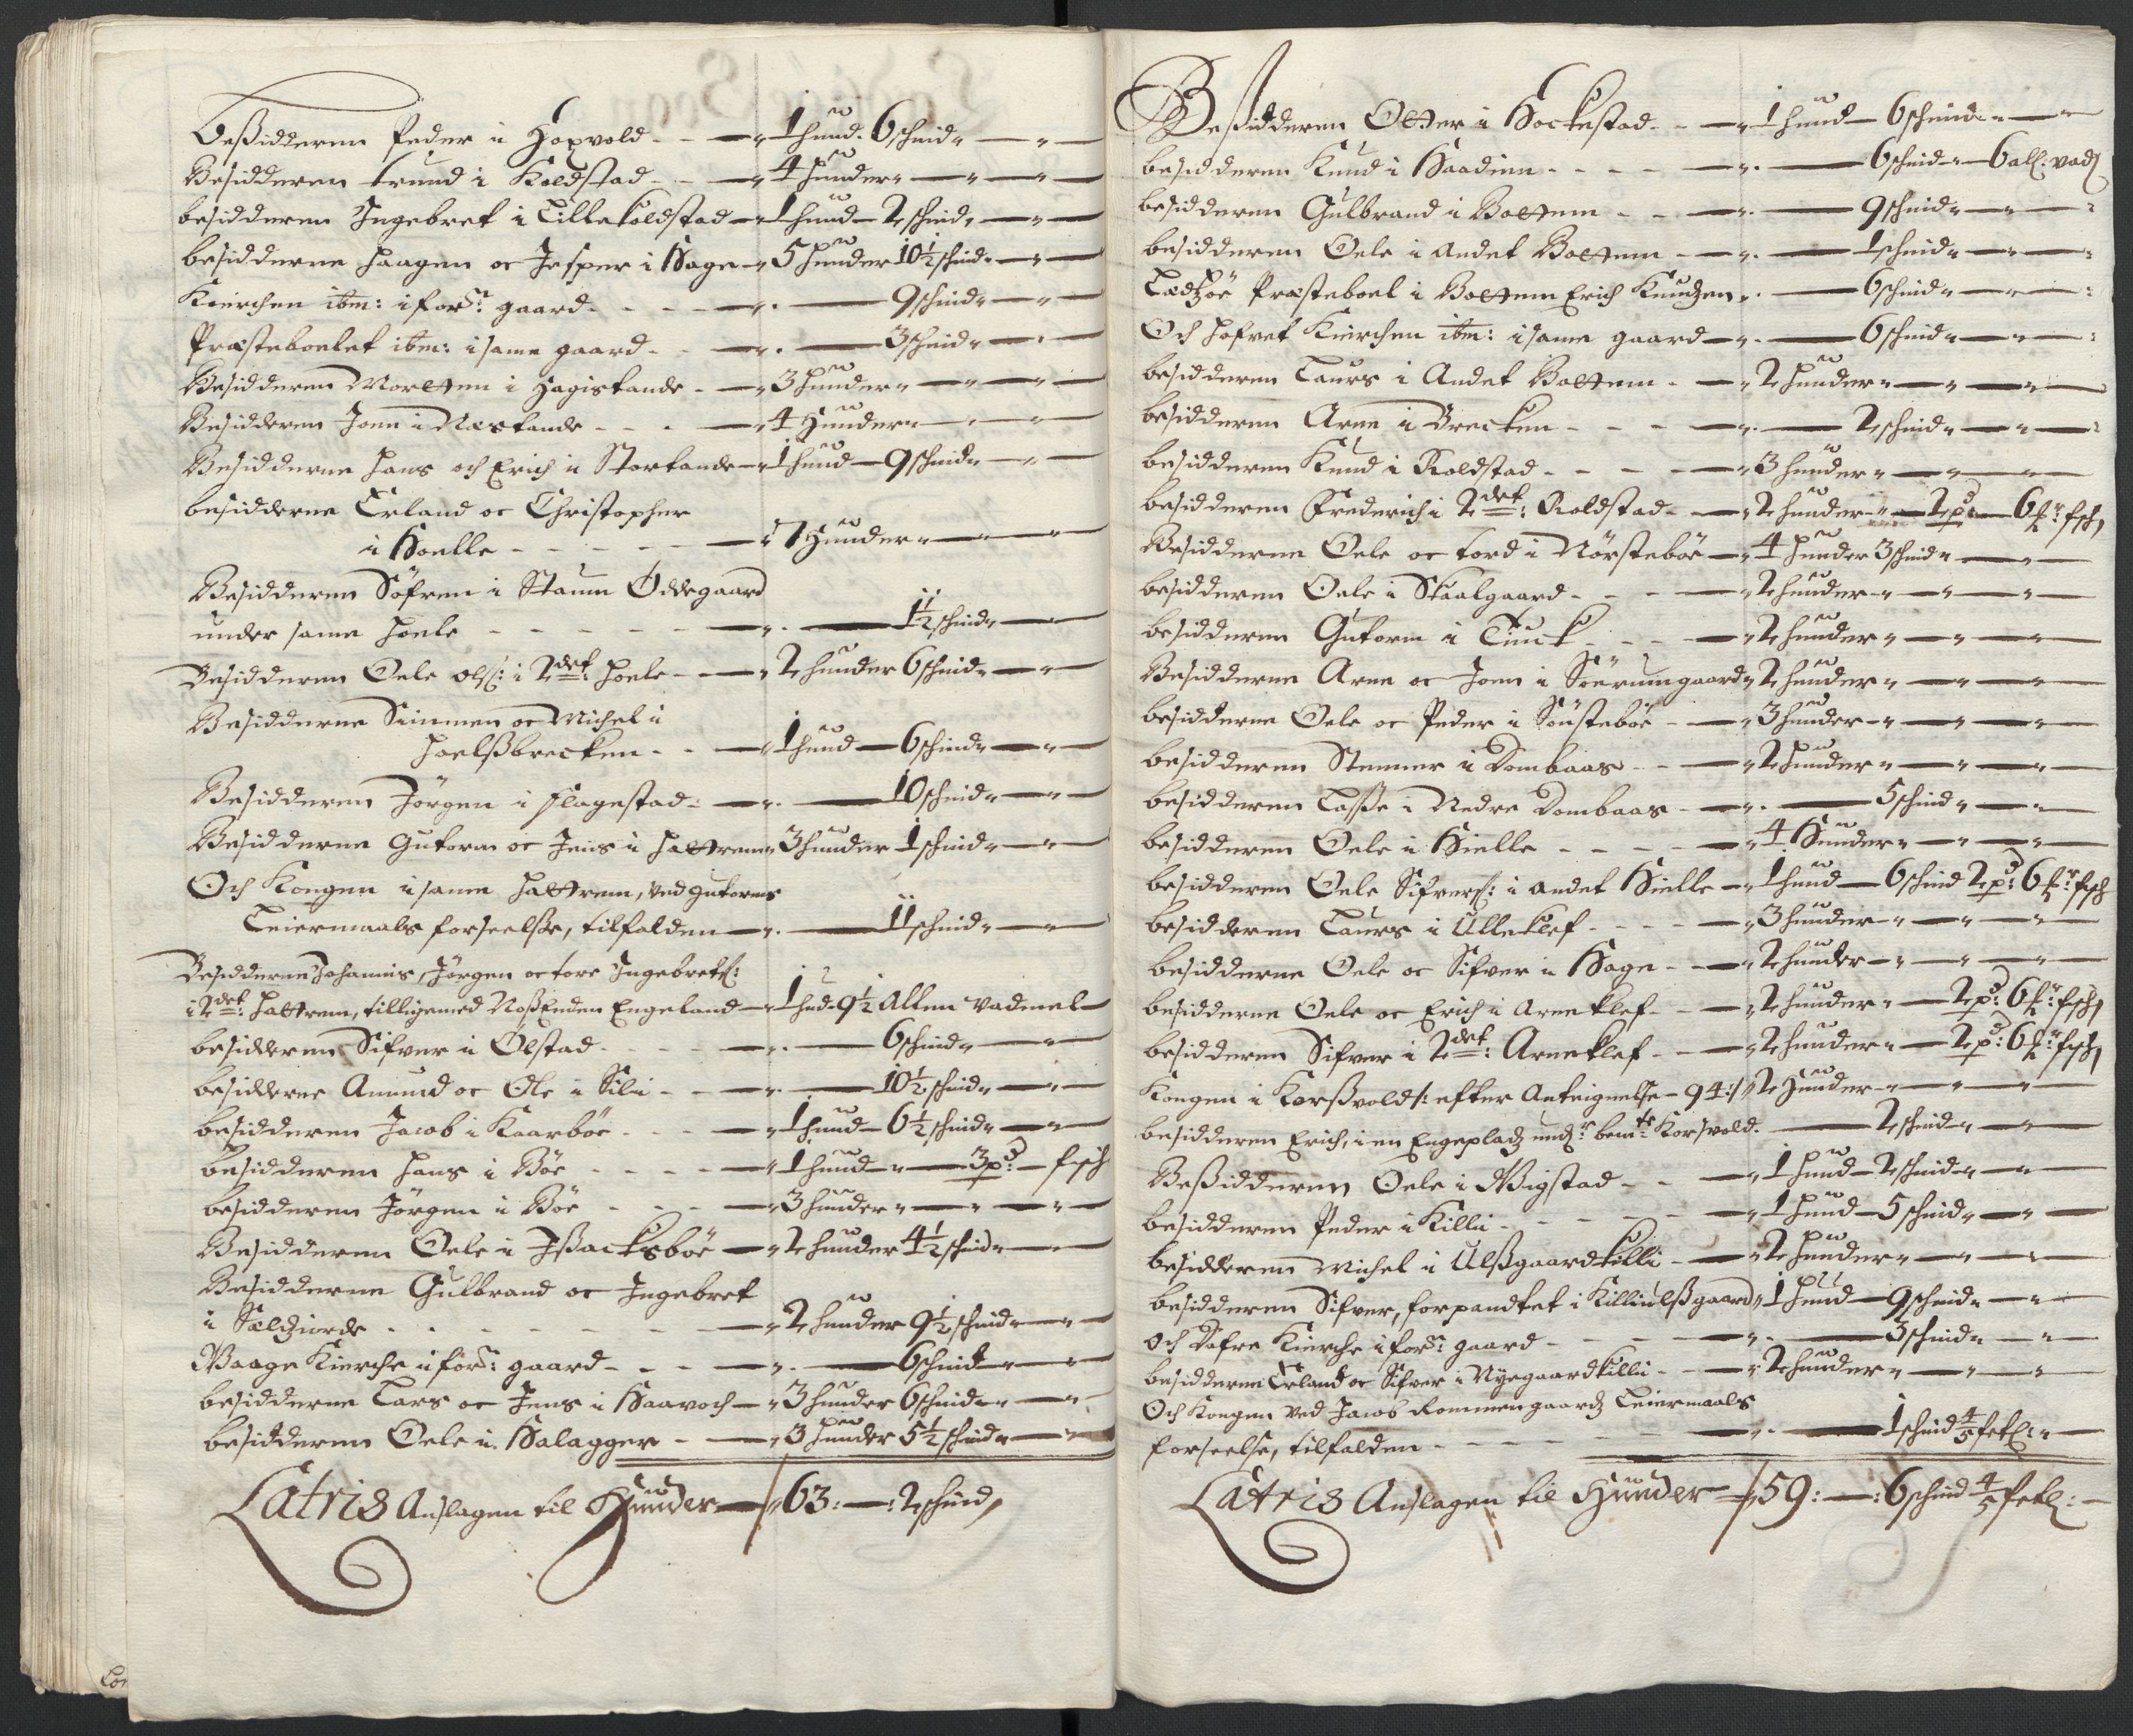 Beßidderen Peder i Hoxvold - - 1 hund. 6 schind
Besidderen trund i Koldstad - 4 hunder
besidderen Jngebret i Lillekoldstad 1 hund 2 schind
besidderne Haagen oc Jesper i Hage 5 hunder 10½ schind
Kierchen ibm: i forne: gaard - - - 9 schind
Præsteboelet ibm: i same gaard - - 3 schind
Besidderen Morten i Hagistande - 3 hunder
Besidderen Joen i Nærstande - - - 4 Hunder
Besidderne Hans och Erich i Storstande 1 hund 9 schind
besidderne Erland oc Christopher
i Hoelle - - - - - 7 Hunder
Besidderen Söfren i Staum Ödegaard
under same Hoele - - - - - 1½ schind
Besidderen Oele ols: i 2det: Hoele - 2 hunder 6 schind
Besidderne Simmen oc Michel i
Hoelßbrecken - - 1 hund 6 schind
Besidderen Jörgen i Flagestad - 10 schind
Besidderne Gutorm oc Jens i Hattrem 3 hunder 1 schind
Och Kongen i same Hattrem, ved gutorms
Leiermaals forseelße, tilfalden 11 schind
Besidderne Johannis, Jörgen oc tore Jngebrets:
i 2det: Hattrem, tilligemed Noßenden Engeland 1 hud 9½ Allen vadmel
besidderen Sifver i Ölstad - - 6 schind
besidderne Amund oc Ole i Sili - - 10½ schind
besidderen Jacob i Kaarböe - - - 1 hund 6½ schind
besidderen Hans i Böe - - - - 1 hund 3 pd: fisch
besidderen Jörgen i Böe - - - 3 hunder
Besidderen Oele i Jßacksböe 2 hunder 4½ schind
Besidderne Gulbrand oc Jngebret
i Sælgiorde - - - - - 2 hunder 9½ schind
Waage Kierche i forne: gaard - - - 6 schind
besidderne Lars oc Jens i Haavoch 3 hunder 6 schind
besidderen Oele i Kalagger - - 3 hunder 5½ schind
Latris Anslagen til Hunder 63: 2 schind
Besidderen Otter i Hockestad - - 1 hund 6 schind
besidderen Knud i Haadien - - - - 6 schind 6 all: vadm
besidderen Gulbrand i Bottem - - 9 schind
besidderen Oele i Andet Bottem - 1 schind
Ladzöe Præsteboel i Bottem Erich Knudzen 6 schind
Och Hofvet Kierchen ibm: i same gaard 6 schind
besidderen Laurs i Andet Bottem - 2 hunder
besidderen Arne i Brecken - - - 2 schind
besidderen Knud i Roldstad - - - 3 hunder
besidderen Frederich i 2det: Roldstad - 2 hunder 2 pd: 6 mkr: fisch
Besidderne Oele oc tord i Nörsteböe 4 hunder 3 schind
besidderen Oele i Skaalgaard - - - 2 hunder
besidderen Gutorm i Tiuck - - - 2 hunder
Besidderne Arne oc Joen i Sörumgaard 2 hunder
besidderne Oele oc Peder i Sönsteböe - 3 hunder
besidderen Stenner i Dombaas - - 2 hunder
besidderen Laße i Nedre Dombaas - 5 schind
besidderen Oele i Hielle - - - - 4 Hunder
besidderen Oele Sifvers: i andet Hielle 1 hund 6 schind 2 pd: 6 mkr: fisch
besidderen Laurs i Ulleklef - - - 3 hunder
besidderne Oele oc Sifver i Hage - - 2 hunder
besidderne Oele oc Erich i Arneklef - 2 hunder 2 pd: 6 mkr: fisch
besidderen Sifver i 2det: Arneklef - 2 hunder 2 pd: 6 mkr: fisch
Kongen i Korßvold /: efter Anteignelse - 94 :/ 2 Hunder
besidderen Erich, i en Engepladz undr: bemte: Korsvold. 2 schind
Beßidderen Oele i Wigstad - - 1 hund 2 schind
besidderen Peder i Killi - - - - - 1 hund 5 schind
besidderen Michel i Ulßgaardkilli - 2 hunder
besidderen Sifver, forpandtet i Killiulßgaard 1 hund 9 schind
och Dofre Kierche i forne: gaard - - - 3 schind
besidderne Erland oc Sifver i Nyegaardkilli - 2 hunder
Och Kongen ved Jacob Rommengaards Leiermaals
forseelse, tilfalden - - - - - 1 schind 4/5 fetl:
Latris Anslagen til Hunder 59: 6 schind 4/5 fetl: